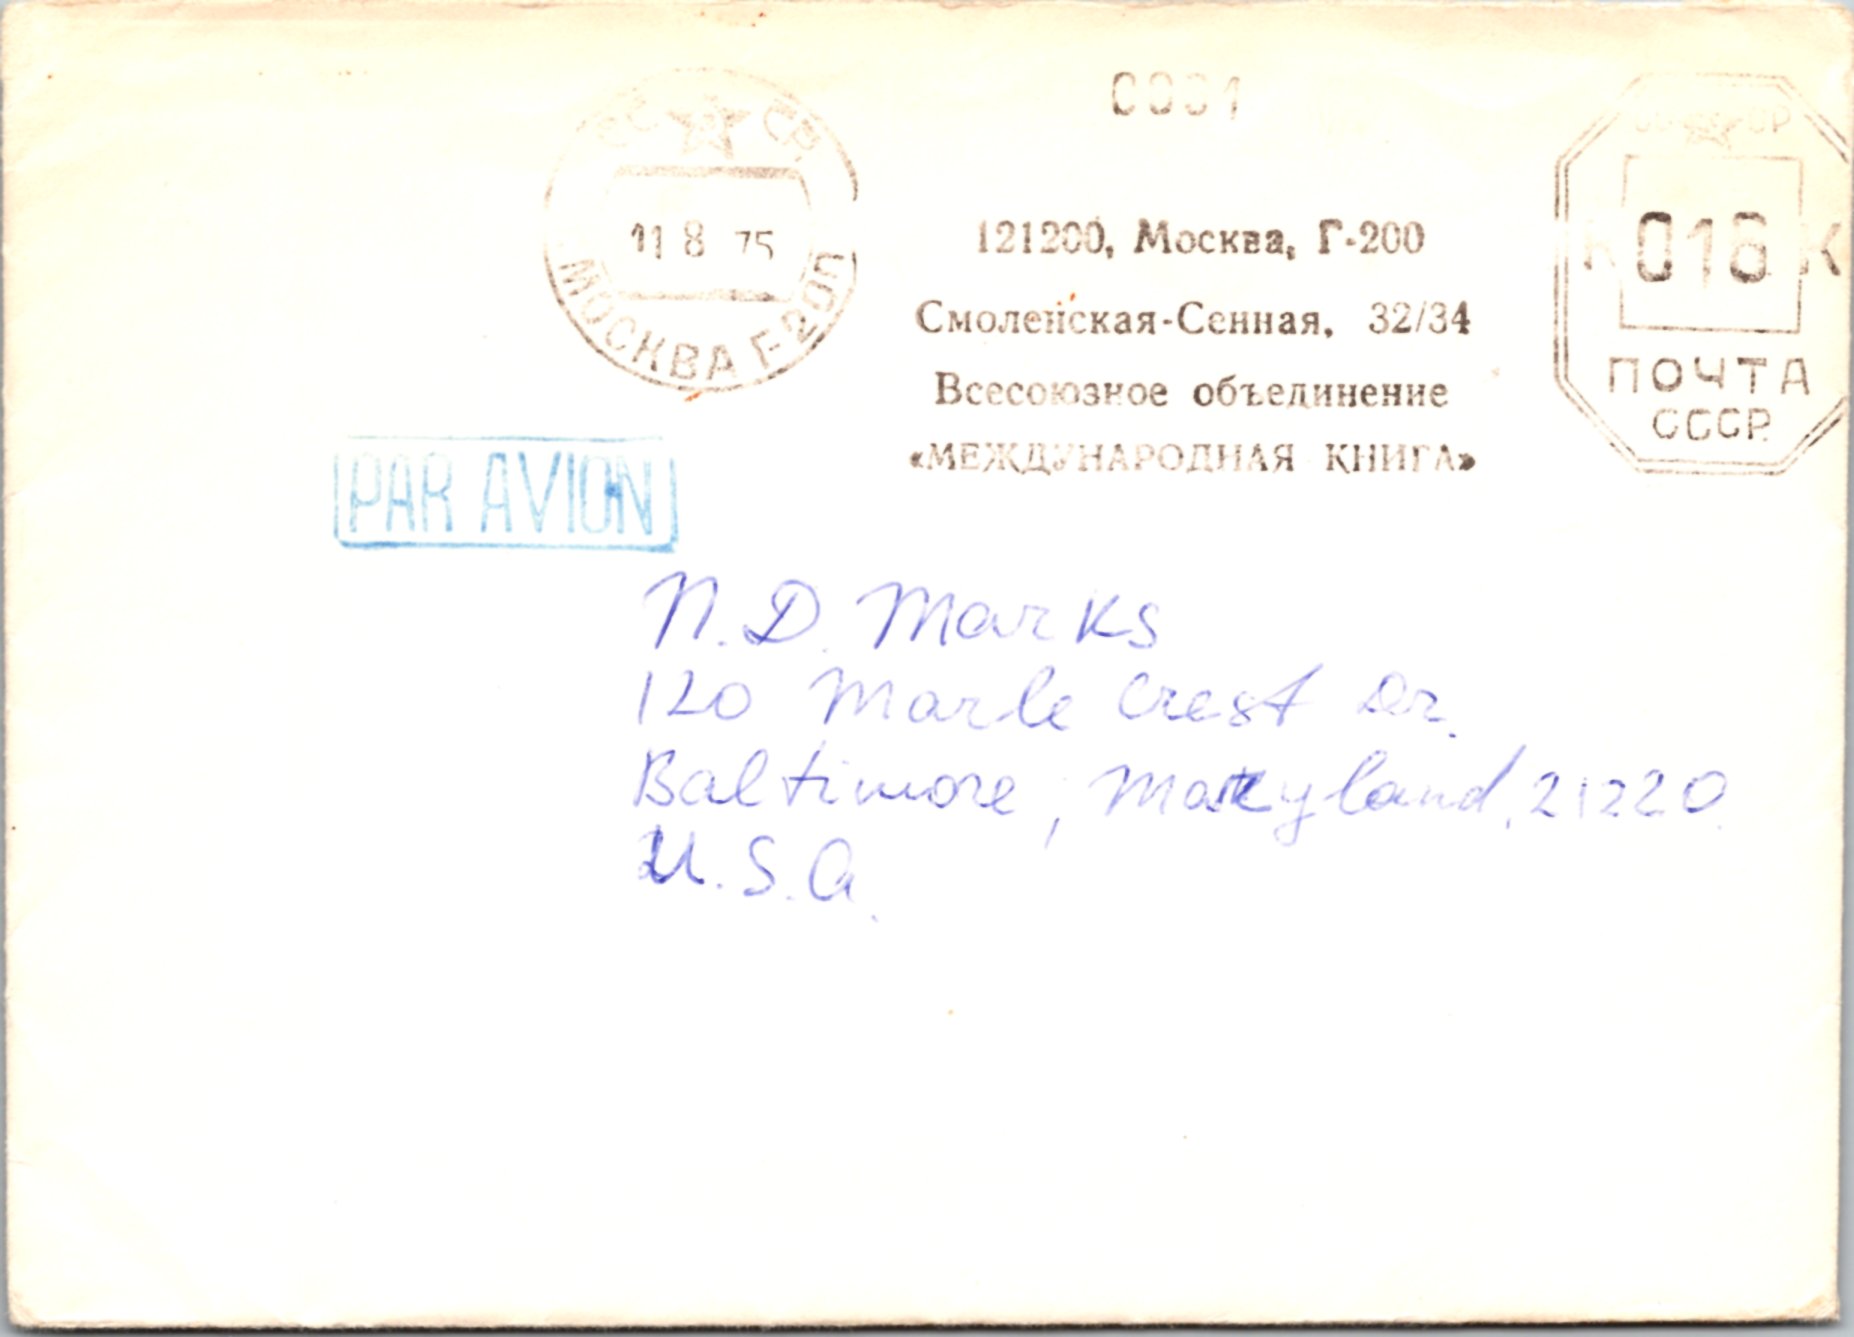 0001
СССР
11 8 75
МОСКВА Г-200
121200, Москва, Г-200
Смоленская-Сенная, 32/34
Всесоюзное объединение
«МЕЖДУНАРОДНАЯ КНИГА»
К 016 К
ПОЧТА
СССР
PAR AVION
N. D. Marks
120 Marle Crest Dr.
Baltimore, Maryland, 21220
U.S.A.